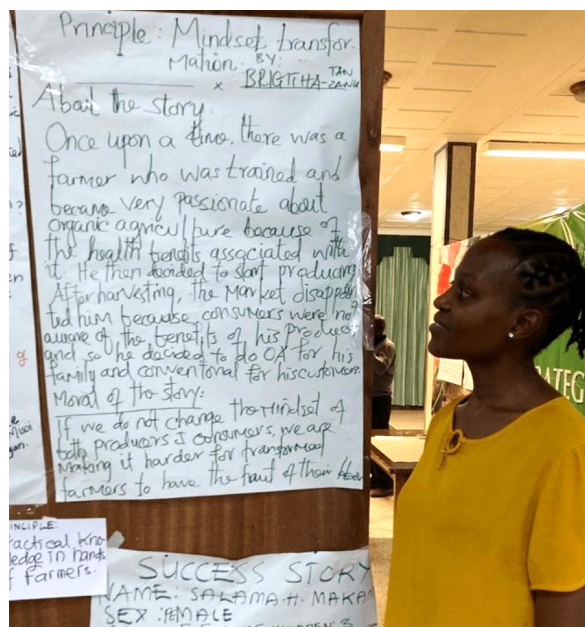 Principle: Mindset transfor-
mation. BY:
BRIGITHA- TAN
ZANIA
About the story.
Once upon a time, there was a
farmer who was trained and
became very passionate about
organic agriculture because of
the health benefits associated with
it. He then decided to start producing
After harvesting, the Market disappoin
ted him because consumers were not
aware of the benefits of his produce
and so he decided to do OA for his
family and conventional for his customers.
Moral of the story:
If we do not change the mindset of
both producers & consumers, we are
making it harder for transformed
farmers to have the fruit of their
INCIPLE:
actical Kno-
ledge in hands
f farmers.
SUCCESS STORY
NAME: SALAMA.H. MAKA
SEX :FEMALE
ATEG